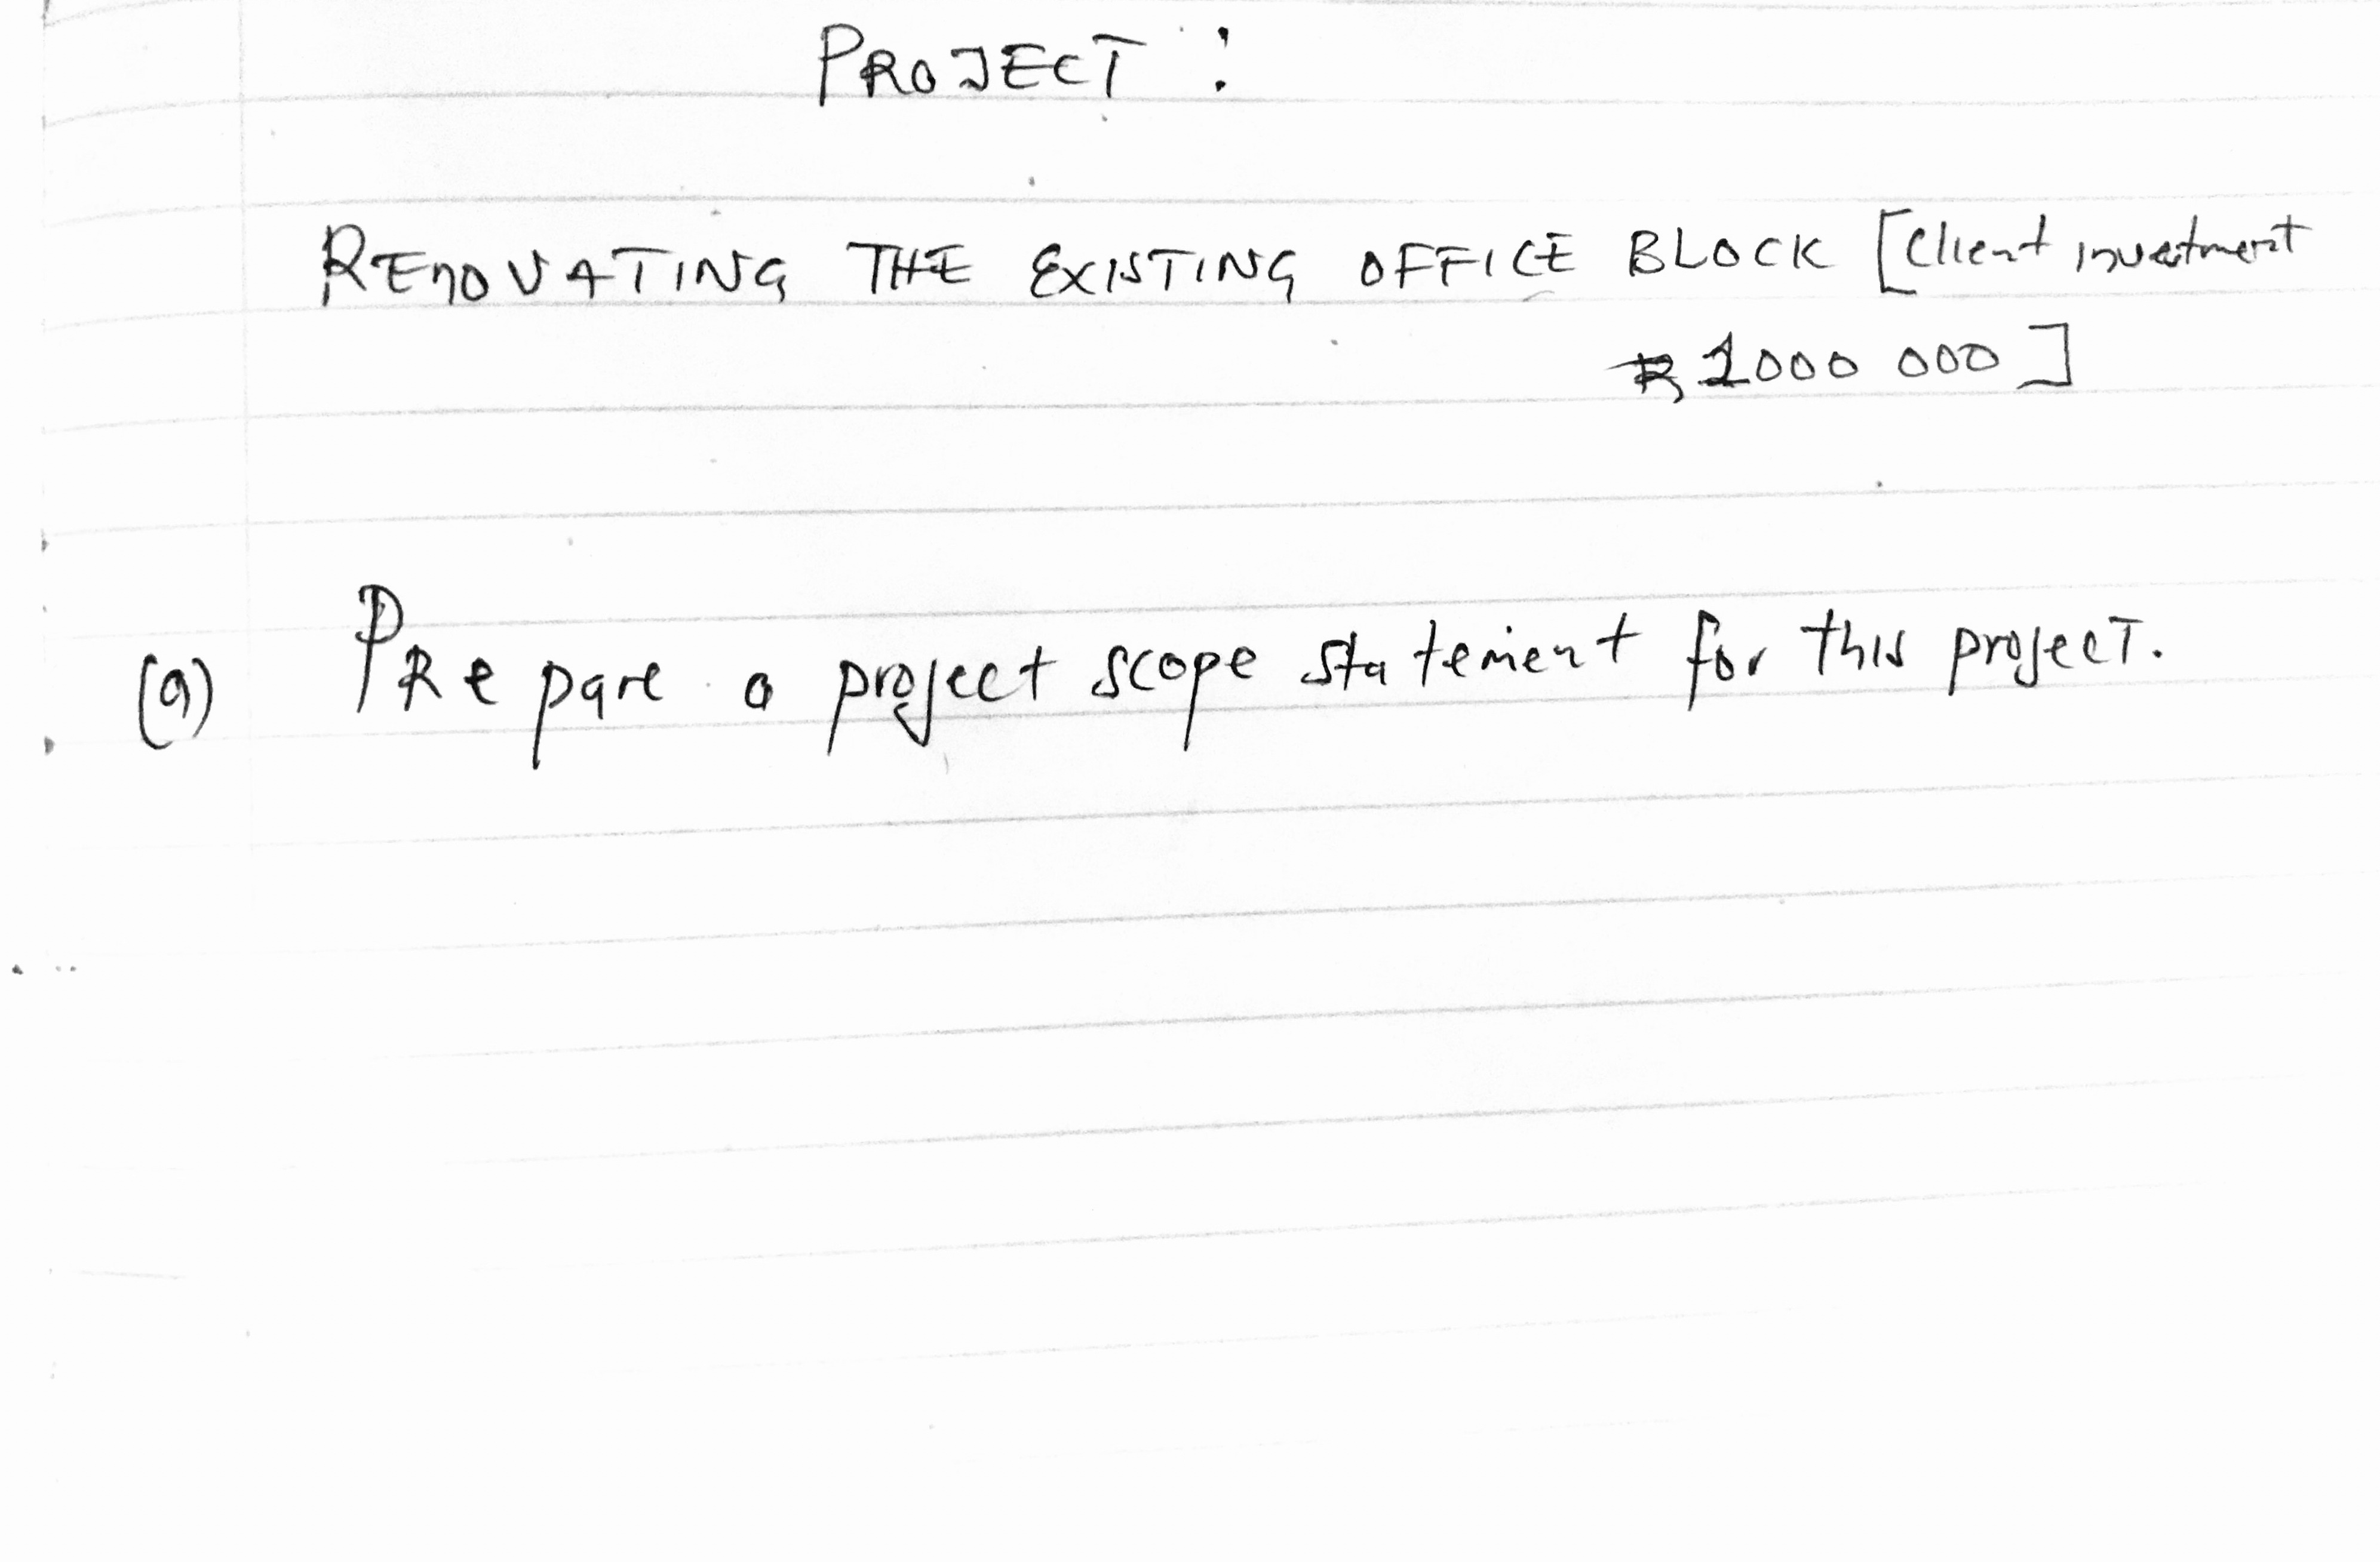 PROJECT :
RENOVATING THE EXISTING OFFICE BLOCK [Client investment
R 1000 000]
(a) PRepare a project scope statement for this project.